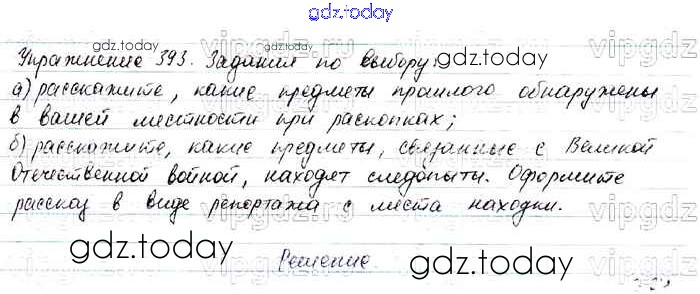 gdz.today
Упражнение 393. Задания по выбору:
gdz.today gdz.today
а) расскажите, какие предметы прошлого обнаружены
в вашей местности при раскопках;
б) расскажите, какие предметы, связанные с Великой
Отечественной войной, находят следопыты. Оформите
рассказ в виде репортажа с места находки.
gdz.today gdz.today
Решение.